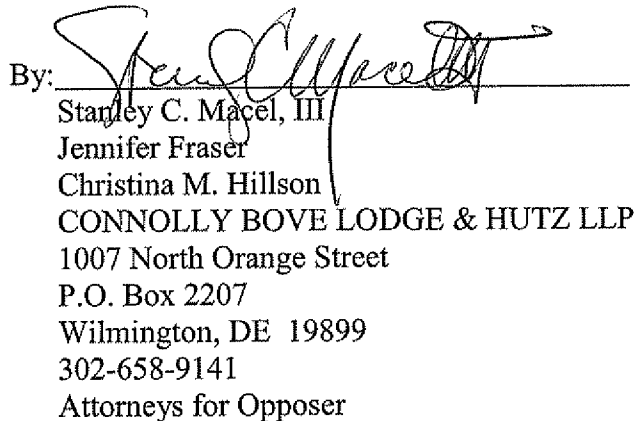 By: Stanley C Macel III
Stanley C. Macel, III
Jennifer Fraser
Christina M. Hillson
CONNOLLY BOVE LODGE & HUTZ LLP
1007 North Orange Street
P.O. Box 2207
Wilmington, DE 19899
302-658-9141
Attorneys for Opposer